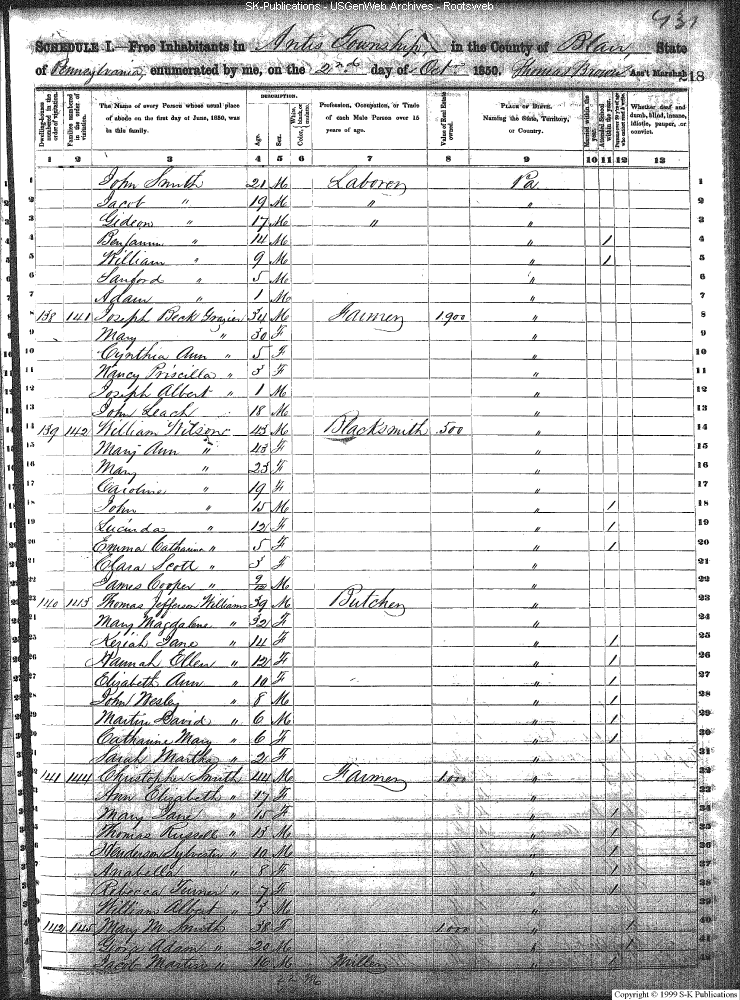 SK-Publications - USGenWeb Archives - Rootsweb
931
SCHEDULE I.—Free Inhabitants in Antis Township, in the County of Blair, State
of Pennsylvania, enumerated by me, on the 2nd day of Oct 1850. Thomas Brown Ass't Marshal 18
DESCRIPTION.
Dwelling-houses numbered in the order of visitation. Families numbered in the order of visitation. The Name of every Person whose usual place of abode on the first day of June, 1850, was in this family. Age. Sex. White, black, or mulatto. Color, Profession, Occupation, or Trade of each Male Person over 15 years of age. Value of Real Estate owned. PLACE OF BIRTH. Naming the State, Territory, or Country. Married within the year. Attended School within the year. Whether deaf and dumb, blind, insane, idiotic, pauper, or convict.
1 2 3 4 5 6 7 8 9 10 11 12 13
1 John Smith 21 M Laborer Pa 1
2 Jacob " 19 M " " 2
3 Gideon " 17 M " " 3
4 Benjamin " 14 M " / 4
5 William " 9 M " / 5
6 Sanford " 5 M " 6
7 Adam " 1 M " 7
8 138 141 Joseph Beck Grazier 34 M Farmer 1.900 " 8
9 Mary " 30 F " 9
10 Cynthia Ann " 5 F " 10
11 Nancy Priscilla " 3 F " 11
12 Joseph Albert " 1 M " 12
13 John Leach 18 M " 13
14 139 142 William Wilson 43 M Blacksmith 500 " 14
15 Mary Ann " 43 F " 15
16 Mary " 23 F " 16
17 Caroline " 19 F " 17
18 John " 15 M " / 18
19 Lucinda " 12 F " / 19
20 Emma Catharine " 5 F " / 20
21 Clara Scott " 3 F " 21
22 James Cooper " M " 22
23 140 143 Thomas Jefferson Williams 39 M Butcher " 23
24 Mary Magdalene " 32 F " 24
25 Keziah Jane " 14 F " / 25
26 Hannah Ellen " 12 F " / 26
27 Elizabeth Ann " 10 F " / 27
28 John Wesley " 8 M " / 28
29 Martin David " 6 M " / 29
30 Catharine Mary " 6 F " / 30
31 Sarah Martha " 2 F " 31
32 141 144 Christopher Smith 44 M Farmer 1.000 " 32
33 Ann Elizabeth " 17 F " 33
34 Mary Jane " 15 F " / 34
35 Thomas Russell " 13 M " / 35
36 Henderson Sylvester " 10 M " / 36
37 Anabella " 8 F " / 37
38 Rebecca Turner " 7 F " / 38
39 William Albert " 3 M " 39
40 142 145 Mary M Smith 38 F 1.000 " / 40
41 Adam " 20 M " / 41
42 Jacob Martin " 16 M Miller " 42
22 M
Copyright © 1999 S-K Publications